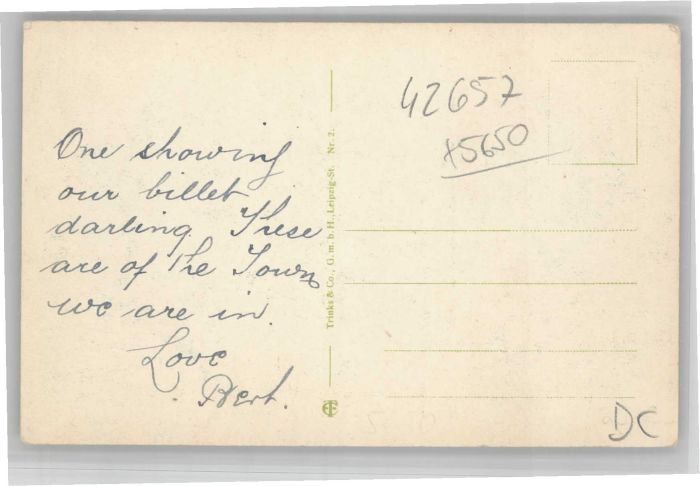 One showing
our billet
darling. These
are of the Town
we are in.
Love
Bert.
Trinks & Co., G. m. b. H., Leipzig-St. Nr. 2.
42657
+5650
DC